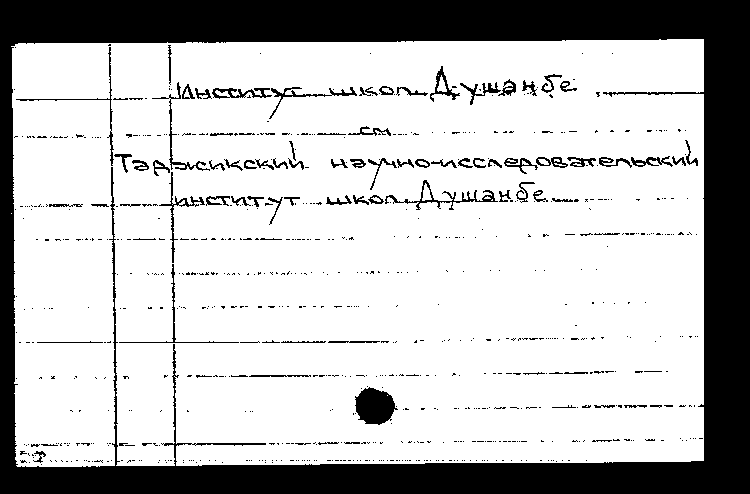 Институт школ. Душанбе
см
Таджикский научно-исследовательский
институт школ. Душанбе